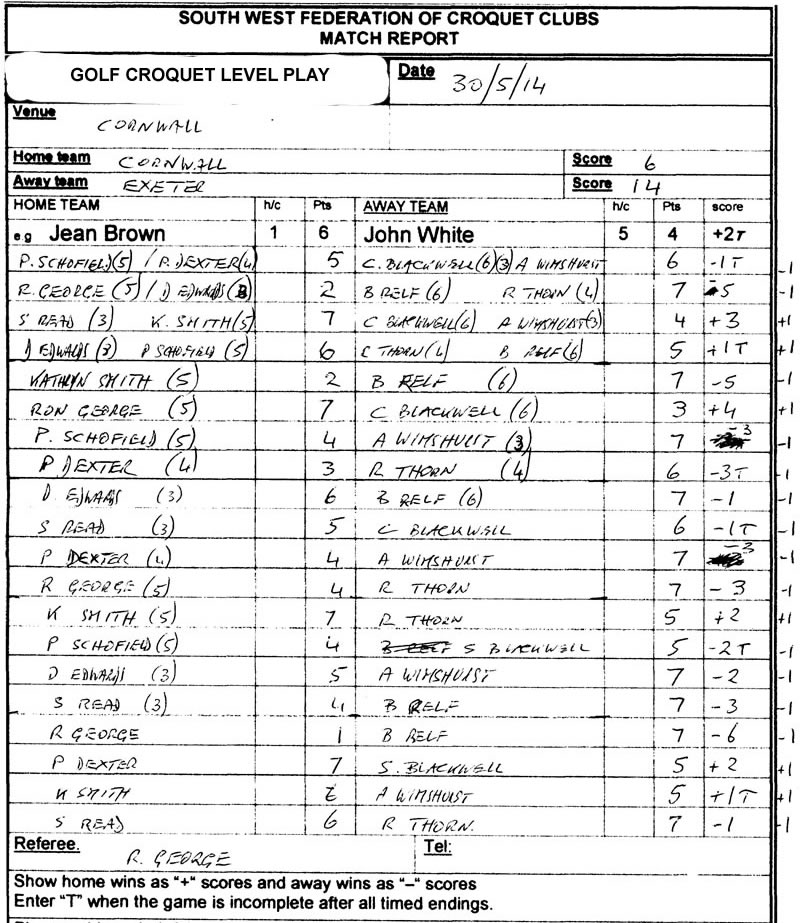 SOUTH WEST FEDERATION OF CROQUET CLUBS
MATCH REPORT
GOLF CROQUET LEVEL PLAY Date 30/5/14
Venue
CORNWALL
Home team CORNWALL Score 6
Away team EXETER Score 14
HOME TEAM h/c Pts AWAY TEAM h/c Pts score
e.g Jean Brown 1 6 John White 5 4 +2T
P. SCHOFIELD (5) / P. DEXTER (4) 5 C. BLACKWELL (6) (3) A WIMSHURST 6 -1T -1
R. GEORGE (5) / D EDWARDS (3) 2 B RELF (6) R THORN (4) 7 -5 -1
S READ (3) K. SMITH (5) 7 C BLACKWELL (6) A WIMSHURST (3) 4 +3 +1
D EDWARDS (3) P SCHOFIELD (5) 6 THORN (4) B RELF (6) 5 +1T +1
KATHRYN SMITH (5) 2 B RELF (6) 7 -5 -1
RON GEORGE (5) 7 C BLACKWELL (6) 3 +4 +1
P. SCHOFIELD (5) 4 A WIMSHURST (3) 7 -3 -1
P DEXTER (4) 3 R THORN (4) 6 -3T -1
D EDWARDS (3) 6 B RELF (6) 7 -1 -1
S READ (3) 5 C BLACKWELL 6 -1T -1
P DEXTER (4) 4 A WIMSHURST 7 -3 -1
R GEORGE (5) 4 R THORN 7 -3 -1
K SMITH (5) 7 R THORN 5 +2 +1
P SCHOFIELD (5) 4 B RELF S BLACKWELL 5 -2T -1
D EDWARDS (3) 5 A WIMSHURST 7 -2 -1
S READ (3) 4 B RELF 7 -3 -1
R GEORGE 1 B RELF 7 -6 -1
P DEXTER 7 S. BLACKWELL 5 +2 +1
K SMITH 6 A WIMSHURST 5 +1T +1
S READ 6 R THORN. 7 -1 -1
Referee. R. GEORGE Tel:
Show home wins as "+" scores and away wins as "–" scores
Enter "T" when the game is incomplete after all timed endings.